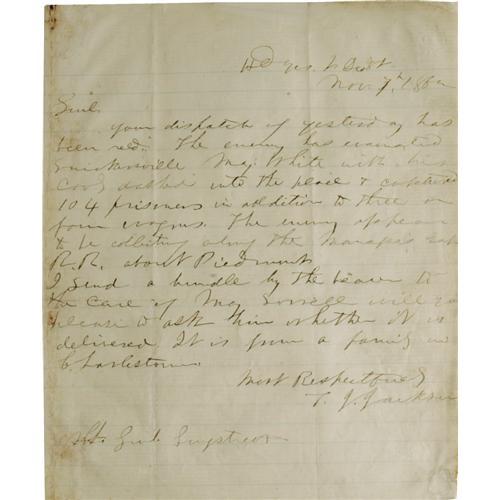 Hd Qrs.
Nov. 7th 1862
Genl.
your dispatch of yesterday has
been recd. The enemy has evacuated
Snickersville Maj. White with his
Cav dashed into the place & captured
104 prisoners in addition to three or
four wagons. The enemy appears
to be collecting along the Manassas Gap
R.R. about Piedmont
I send a bundle by the bearer to
the care of Maj Sorrell will you
please to ask him whether it is
delivered It is from a family in
Charlestown.
Most Respectfully
T. J. Jackson
Lt. Genl. Longstreet